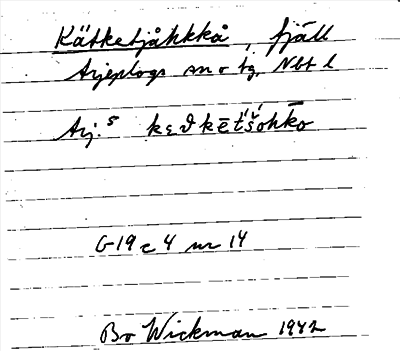 Kätketjåkkå, fjäll
Arjeplogs sn o tg, Nbt l
Arj.s
G19 c 4 nr 14
Bo Wickman 1942